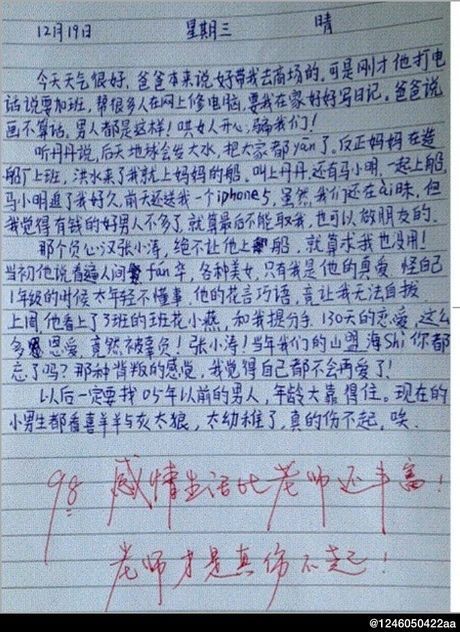 12月19日 星期三 晴
今天天气很好，爸爸本来说好带我去商场的，可是刚才他打电
话说要加班，帮很多人在网上修电脑，要我在家好好写日记。爸爸说
画不算话，男人都是这样！哄女人开心，骗我们！
听丹丹说，后天地球会发大水，把大家都yan了。反正妈妈在造
船厂上班，洪水来了我就上妈妈的船。叫上丹丹，还有马小明，一起上船
马小明追了我好久，前天还送我一个iphone5，虽然，我们还在ai昧，但
我觉得有钱的好男人不多了，就算最后不能取我，也可以做朋友的。
那个负心汉张小涛，绝不让他上船，就算求我也没用！
当初他说看遍人间fan华，各种美女，只有我是他的真爱，怪自己
1年级的时候太年轻不懂事，他的花言巧语，竟让我无法自拔
上周，他看上了3班的班花小燕，和我提分手，130天的恋爱，这么
多恩爱，竟然被辜负！张小涛！当年我们的山盟海Shi你都
忘了吗？那种背叛的感觉，我觉得自己都不会再爱了！
以后一定要找05年以前的男人，年龄大靠得住。现在的
小男生都看喜羊羊与灰太狼，太幼稚了，真的伤不起，唉
98 感情生活比老师还丰富！
老师才是真伤不起！
@1246050422aa